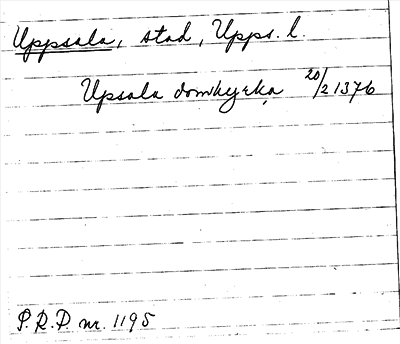 Uppsala, stad, Upps. l.
Upsala domkyrka 20/2 1376
P.R.P. nr. 1195